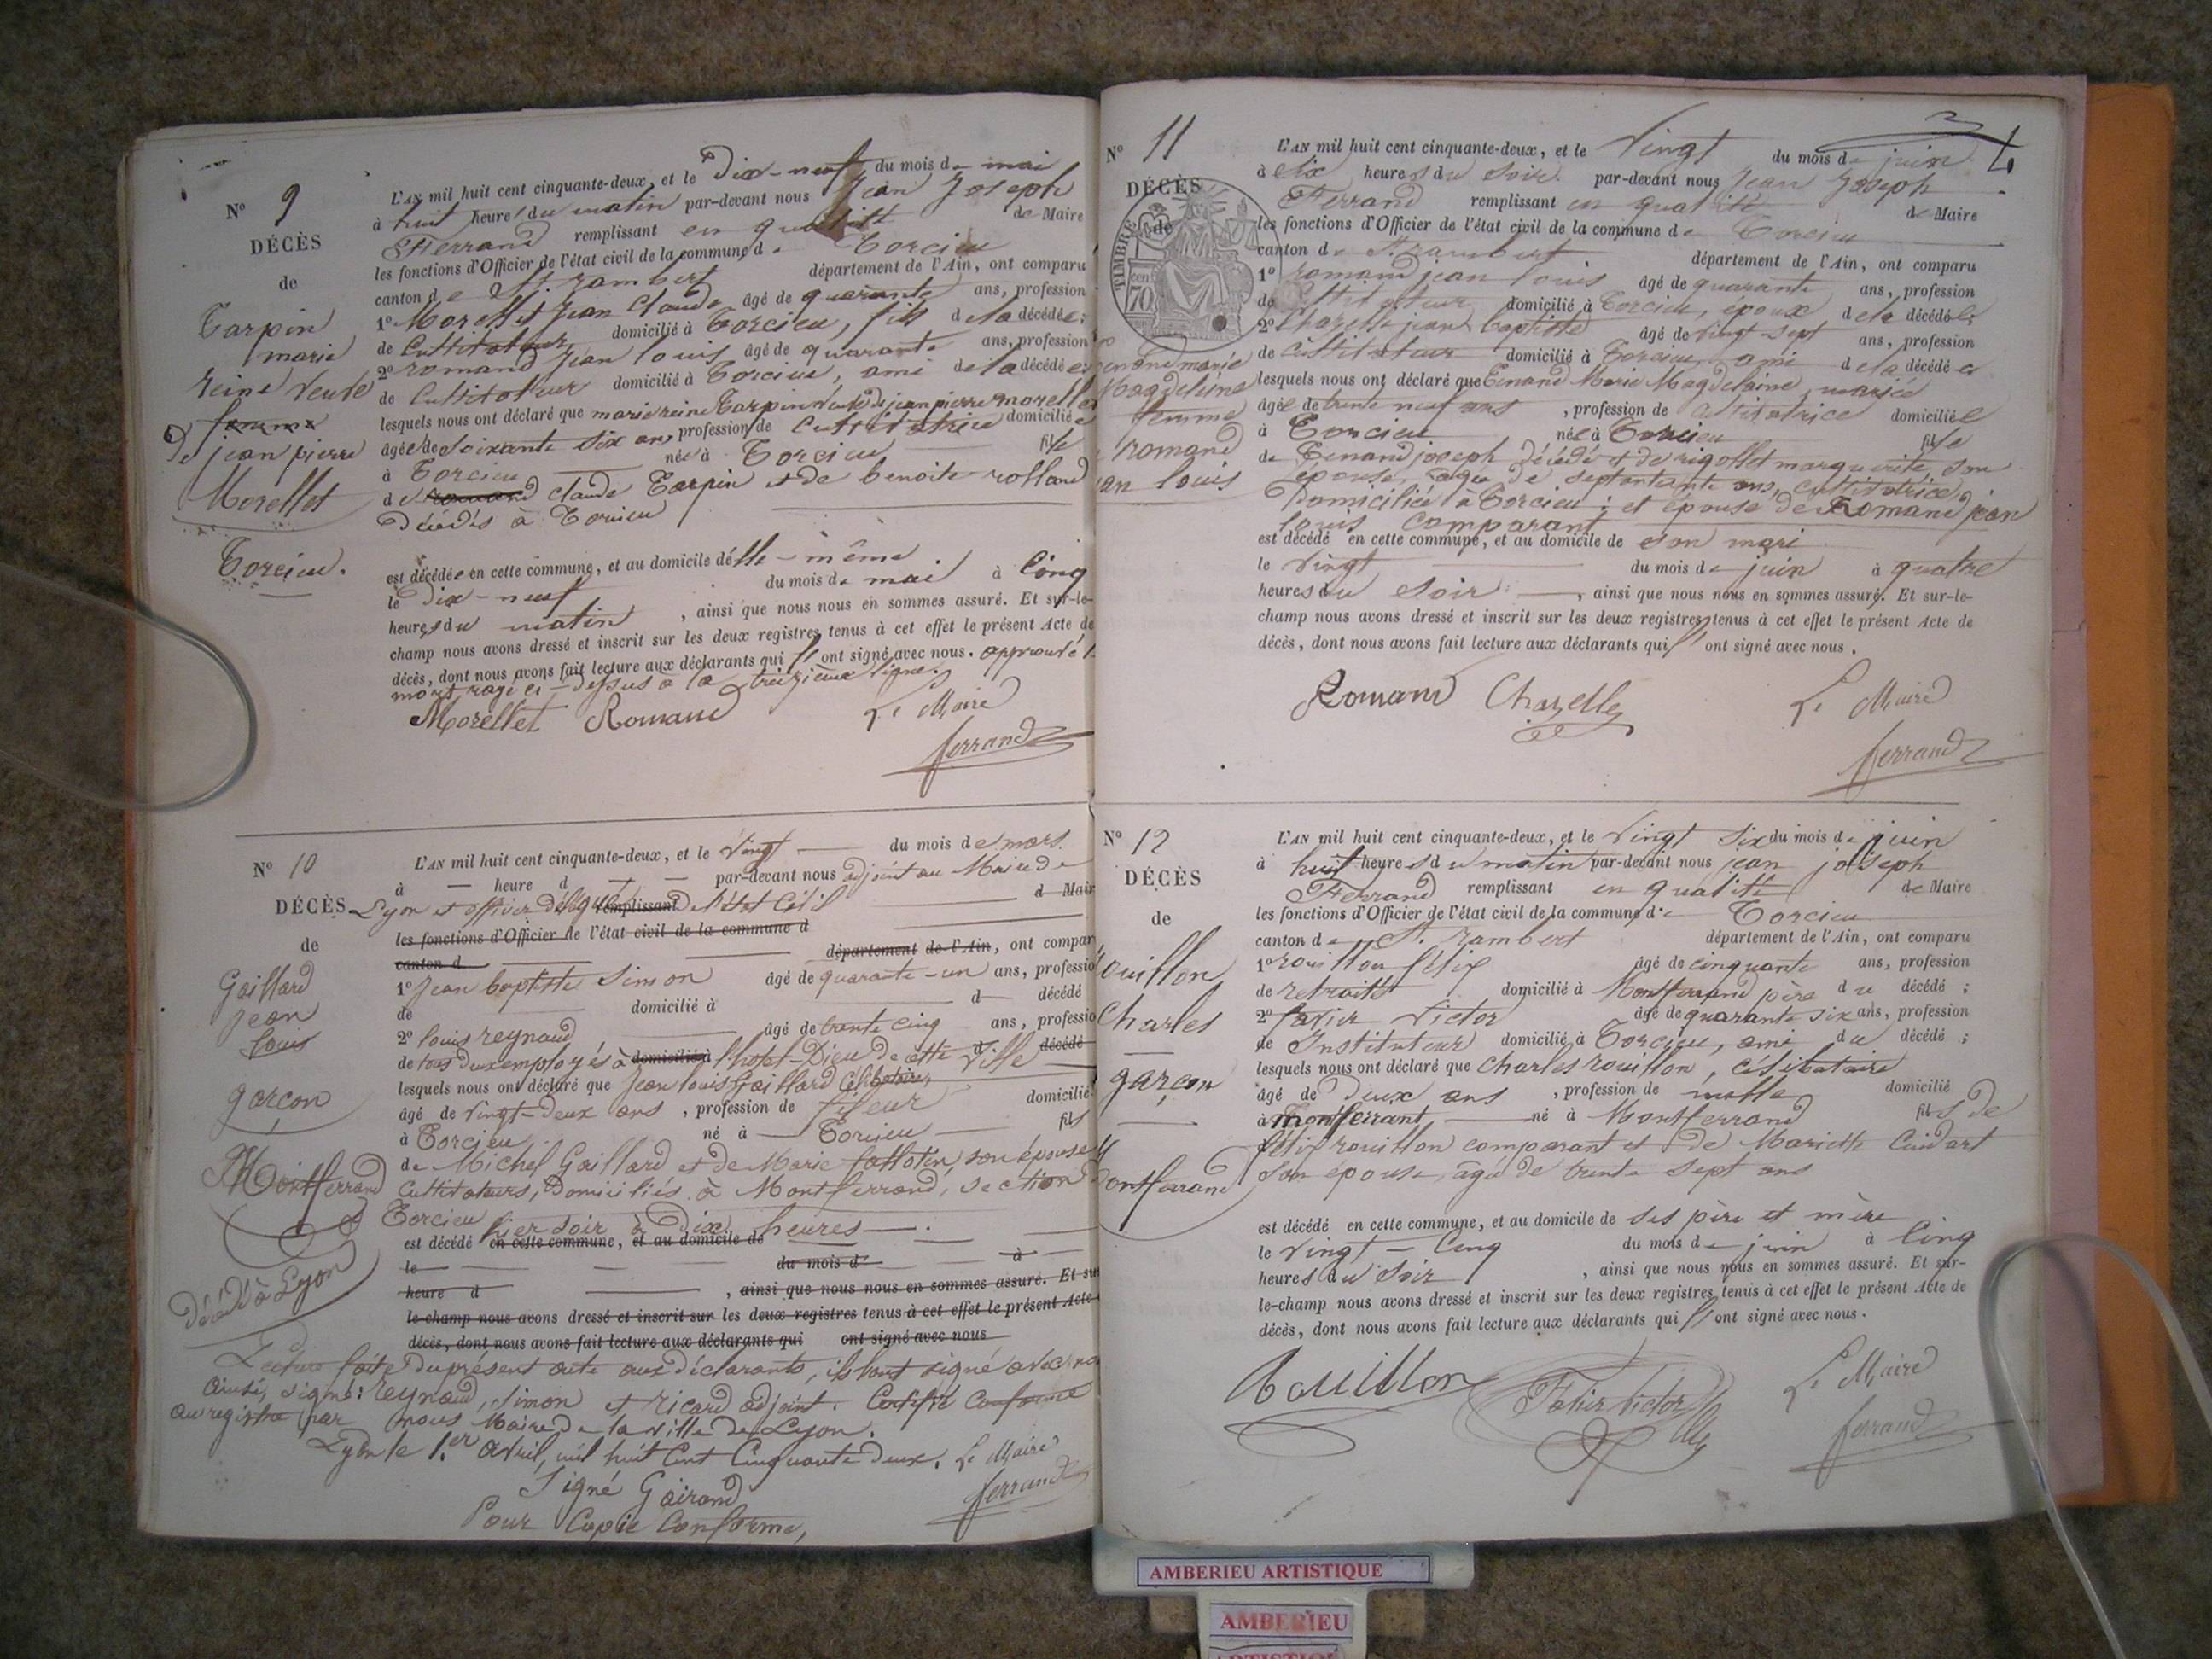 N° 9
DÉCÈS
de
Tarpin
marie
reine veuve
femme
de jean pierre
Morellet
Torcieu.
L'AN mil huit cent cinquante-deux, et le Dix-neuf du mois de mai
à huit heures du matin par-devant nous Jean Joseph
Ferrand remplissant en qualité de Maire
les fonctions d'Officier de l'état civil de la commune de Torcieu
canton de St. rambert département de l'Ain, ont comparu
1° Morellet Jean Claude âgé de quarante ans, profession
de Cultivateur domicilié à Torcieu, fils de la décédée;
2° romand jean louis âgé de quarante ans, profession
de Cultivateur domicilié à Torcieu, ami de la décédée;
lesquels nous ont déclaré que marie reine Tarpin veuve de jean pierre morellet
âgée de soixante six ans, profession de Cultivatrice domiciliée
à Torcieu née à Torcieu fille
de romand claude Tarpin et de benoite rolland
Décédés à Torcieu
est décédée en cette commune, et au domicile d'elle-même
le dix-neuf du mois de mai à Cinq
heures du matin, ainsi que nous nous en sommes assuré. Et sur-le-
champ nous avons dressé et inscrit sur les deux registres tenus à cet effet le présent Acte de
décès, dont nous avons fait lecture aux déclarants qui l'ont signé avec nous. approuvé 1
mots rayé ci-dessus à la treizième ligne.
Morellet Romand Le Maire
ferrand
N° 10
DÉCÈS
de
Gaillard
jean
louis
garçon
Montferrand
Décédé à Lyon
L'AN mil huit cent cinquante-deux, et le Vingt du mois de mars
à heure d par-devant nous adjoint au Maire de
Lyon et officier délégué remplissant de l'état Civil d Mair
les fonctions d'Officier de l'état civil de la commune d
canton d département de l'Ain, ont compar
1° Jean baptiste Simon âgé de quarante-un ans, professio
de domicilié à d décédé
2° louis reynaud âgé de trente cinq ans, professio
de tous deux employés à domicilié à l'hotel-Dieu de cette ville d décédé
lesquels nous ont déclaré que Jean louis Gaillard Célibataire,
âgé de vingt-deux ans, profession de fileur domicilié
à Torcieu né à Torcieu fils
de Michel Gaillard et de Marie son épouse
Cultivateurs, Domiciliés à Montferrand, section
Torcieu hier soir à Dix heures
est décédé en cette commune, et au domicile de
le du mois d à
heure d , ainsi que nous nous en sommes assuré. Et sur
le-champ nous avons dressé et inscrit sur les deux registres tenus à cet effet le présent Acte
décès, dont nous avons fait lecture aux déclarants qui ont signé avec nous
Lecture faite du présent acte aux déclarants, ils l'ont signé avec no
ainsi, signé: reynaud, simon et ricard adjoint. Certifié Conforme
au registre par nous Maire de la ville de Lyon.
Lyon le 1.er avril, mil huit Cent Cinquante deux. Le Maire
Signé Gairand ferrand
Pour Copie Conforme,
4
N° 11
DÉCÈS
de
TIMBRE
70
marie
Magdeleine
femme
romand
an louis
L'AN mil huit cent cinquante-deux, et le Vingt du mois de juin
à six heures du soir par-devant nous Jean Joseph
Ferrand remplissant en qualité de Maire
les fonctions d'Officier de l'état civil de la commune de Torcieu
canton de St. rambert département de l'Ain, ont comparu
1° romand jean louis âgé de quarante ans, profession
de Cultivateur domicilié à Torcieu, époux de la décédée;
2° Chazelle jean baptiste âgé de vingt-sept ans, profession
de Cultivateur domicilié à Torcieu, ami de la décédée
lesquels nous ont déclaré que Tenand Marie Magdelaine, mariée
âgée de trente neuf ans, profession de Cultivatrice domiciliée
à Torcieu née à Torcieu fille
de Tenand joseph Décédé et de rigollet marguerite, son
épouse, agée de septante ans, cultivatrice,
Domiciliée à Torcieu; et épouse de Romand jean
louis comparant
est décédé en cette commune, et au domicile de son mari
le Vingt du mois de juin à quatre
heures du soir, ainsi que nous nous en sommes assuré. Et sur-le-
champ nous avons dressé et inscrit sur les deux registres tenus à cet effet le présent Acte de
décès, dont nous avons fait lecture aux déclarants qui l'ont signé avec nous.
Romand Chazelle Le Maire
ferrand
N° 12
DÉCÈS
de
ouillon
Charles
garçon
ontferrand
L'AN mil huit cent cinquante-deux, et le Vingt six du mois de juin
à huit heures du matin par-devant nous jean joseph
Ferrand remplissant en qualité de Maire
les fonctions d'Officier de l'état civil de la commune de Torcieu
canton de St. rambert département de l'Ain, ont comparu
1° rouillon félix âgé de cinquante ans, profession
de retraité domicilié à Montferrand père du décédé;
2° favier Victor âgé de quarante six ans, profession
de Instituteur domicilié à Torcieu, ami du décédé;
lesquels nous ont déclaré que Charles rouillon, célibataire
âgé de deux ans, profession de nulle domicilié
à Montferrant né à Montferrand fils de
félix rouillon comparant et de Mariette
Son épouse, âgée de trente sept ans
est décédé en cette commune, et au domicile de ses père et mère
le vingt-Cinq du mois de juin à Cinq
heures du soir, ainsi que nous nous en sommes assuré. Et sur-
le-champ nous avons dressé et inscrit sur les deux registres tenus à cet effet le présent Acte de
décès, dont nous avons fait lecture aux déclarants qui l'ont signé avec nous.
Rouillon Favier Victor Le Maire
ferrand
AMBERIEU ARTISTIQUE
AMBERIEU
ARTISTIQUE